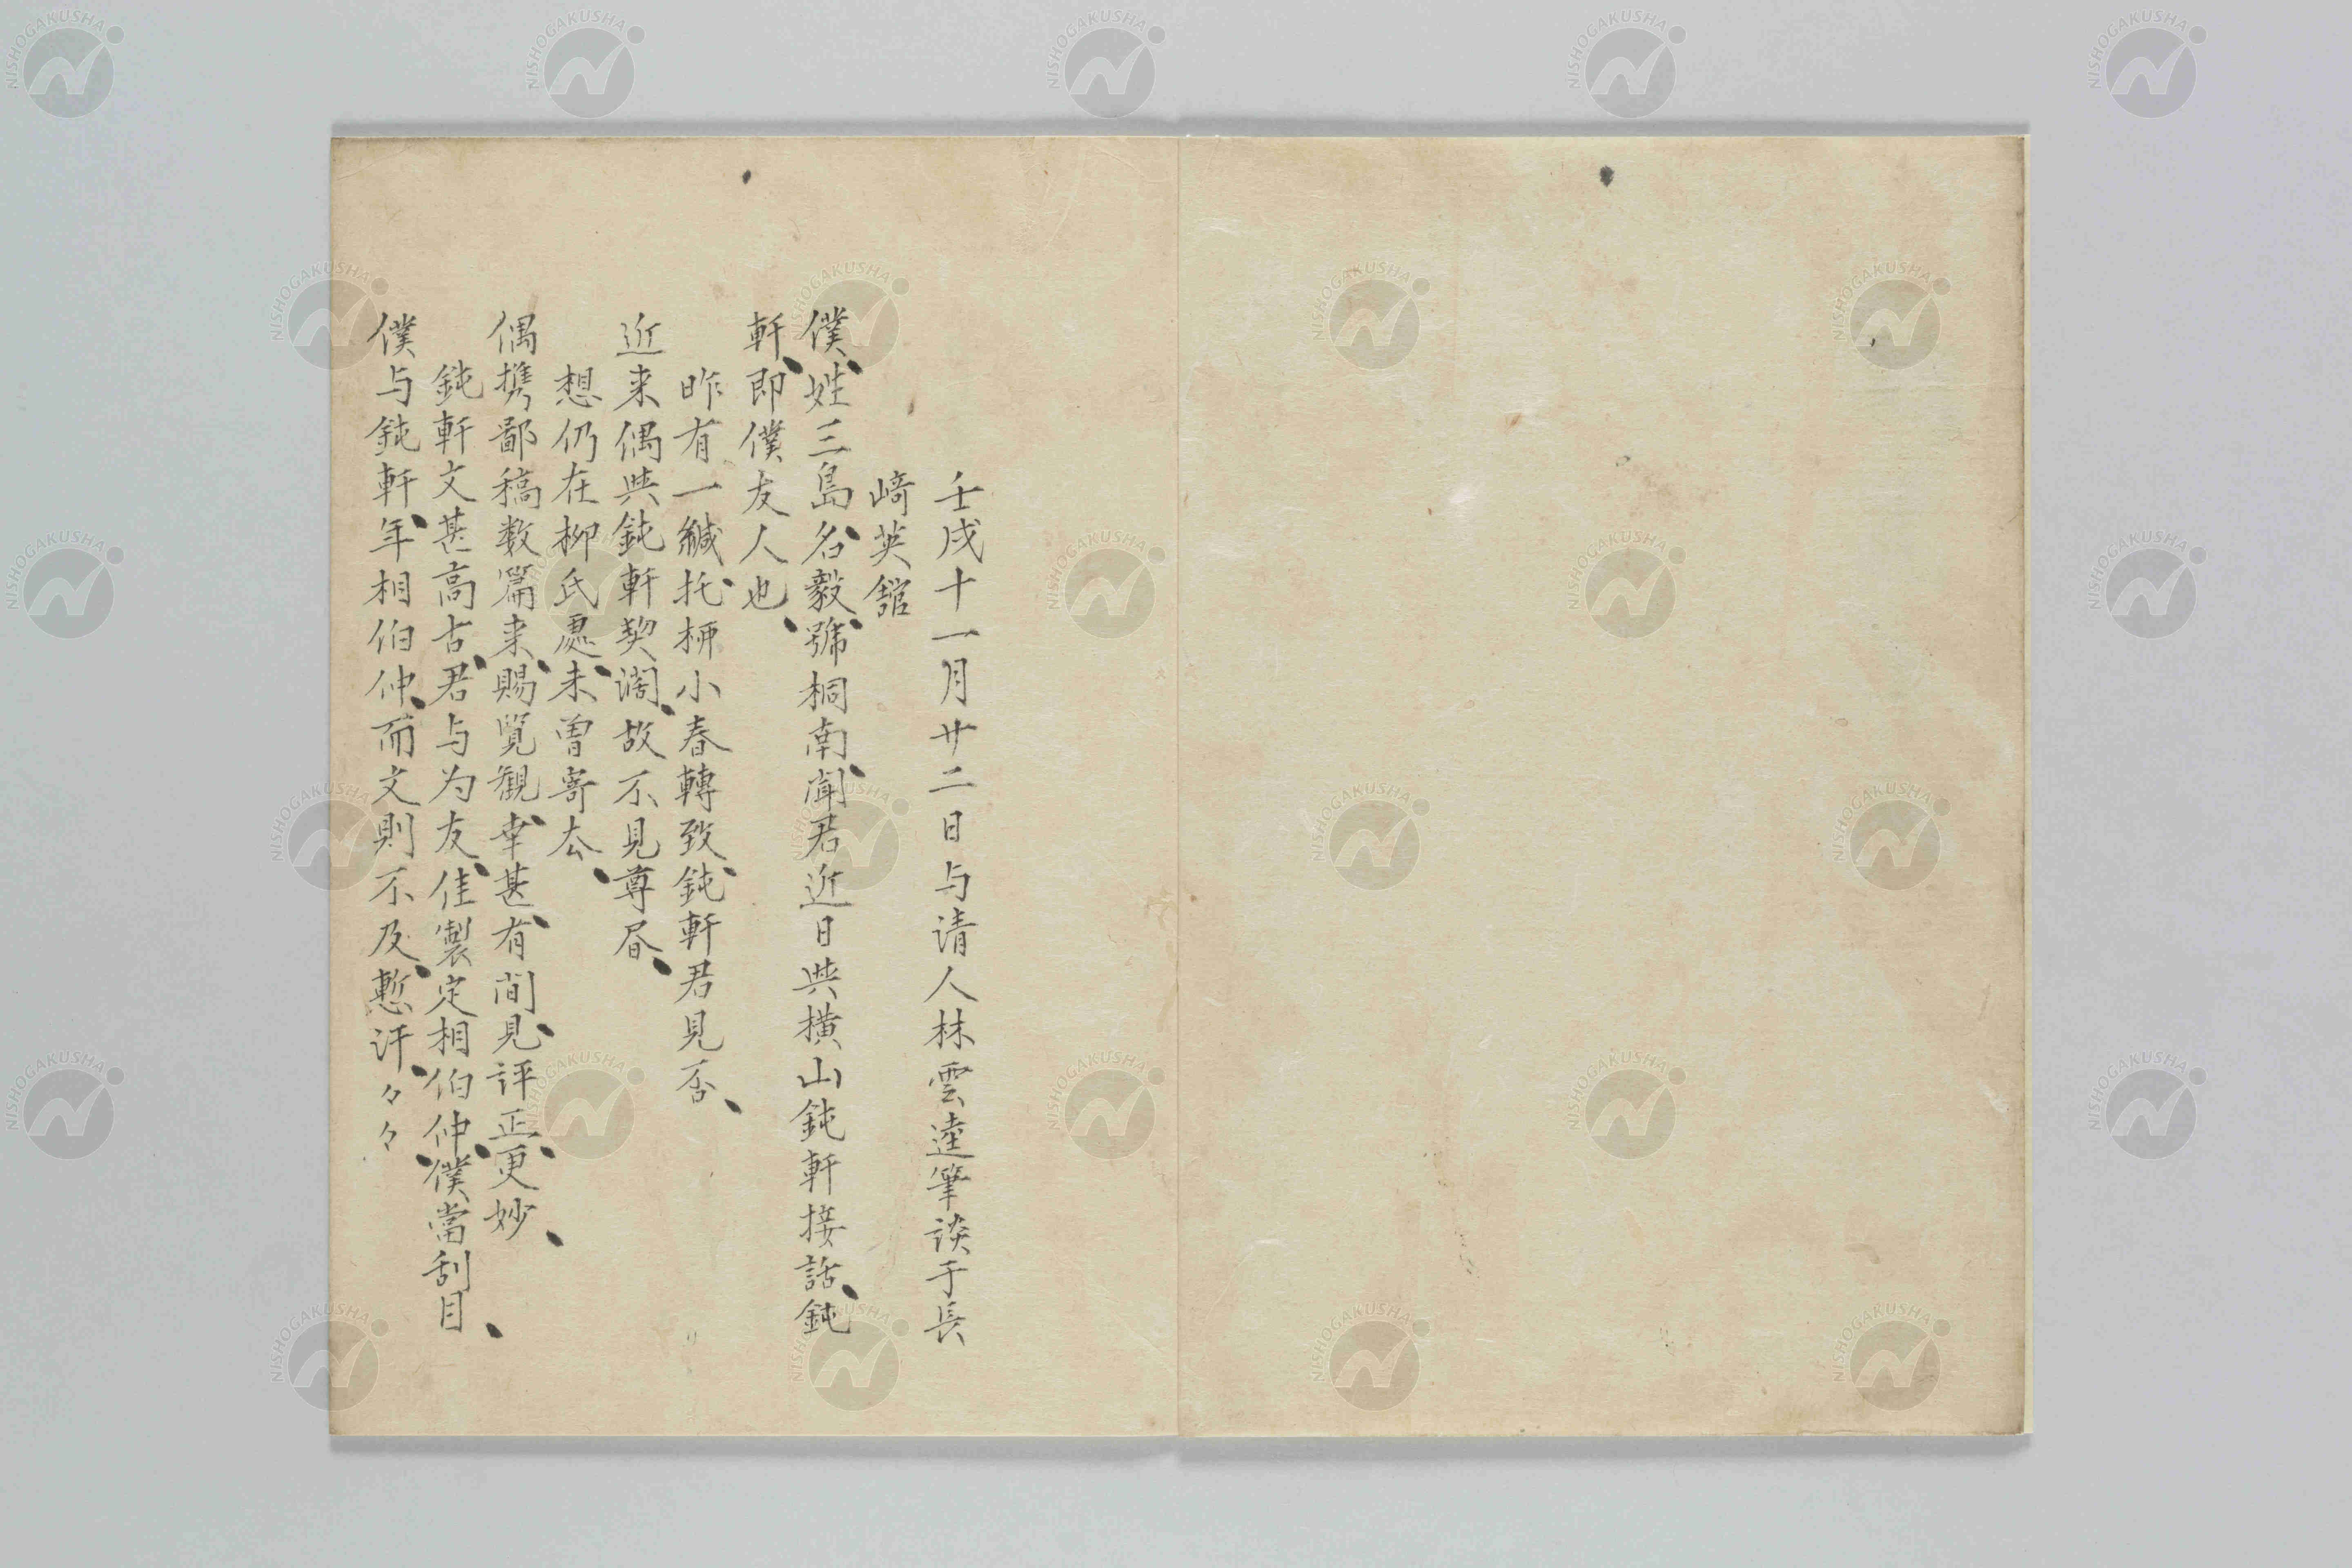 壬戌十一月廿二日与清人林雲逵筆談于長
崎英舘
僕、姓三島、名毅、號桐南、聞君近日與横山鈍軒接話、鈍
軒、即僕友人也、
昨有一緘、托柄小春轉致、鈍軒君見否、
近来偶與鈍軒契濶、故不見尊
想仍在柳氏處、未曽寄去、
偶携鄙稿数篇来、賜覧観、幸甚、有間見、評正、更妙、
鈍軒文甚高古、君与为友、佳製定相伯仲、僕當刮目、
僕与鈍軒、年相伯仲、而文則不及、慙汗、々々
NISHOGAKUSHA